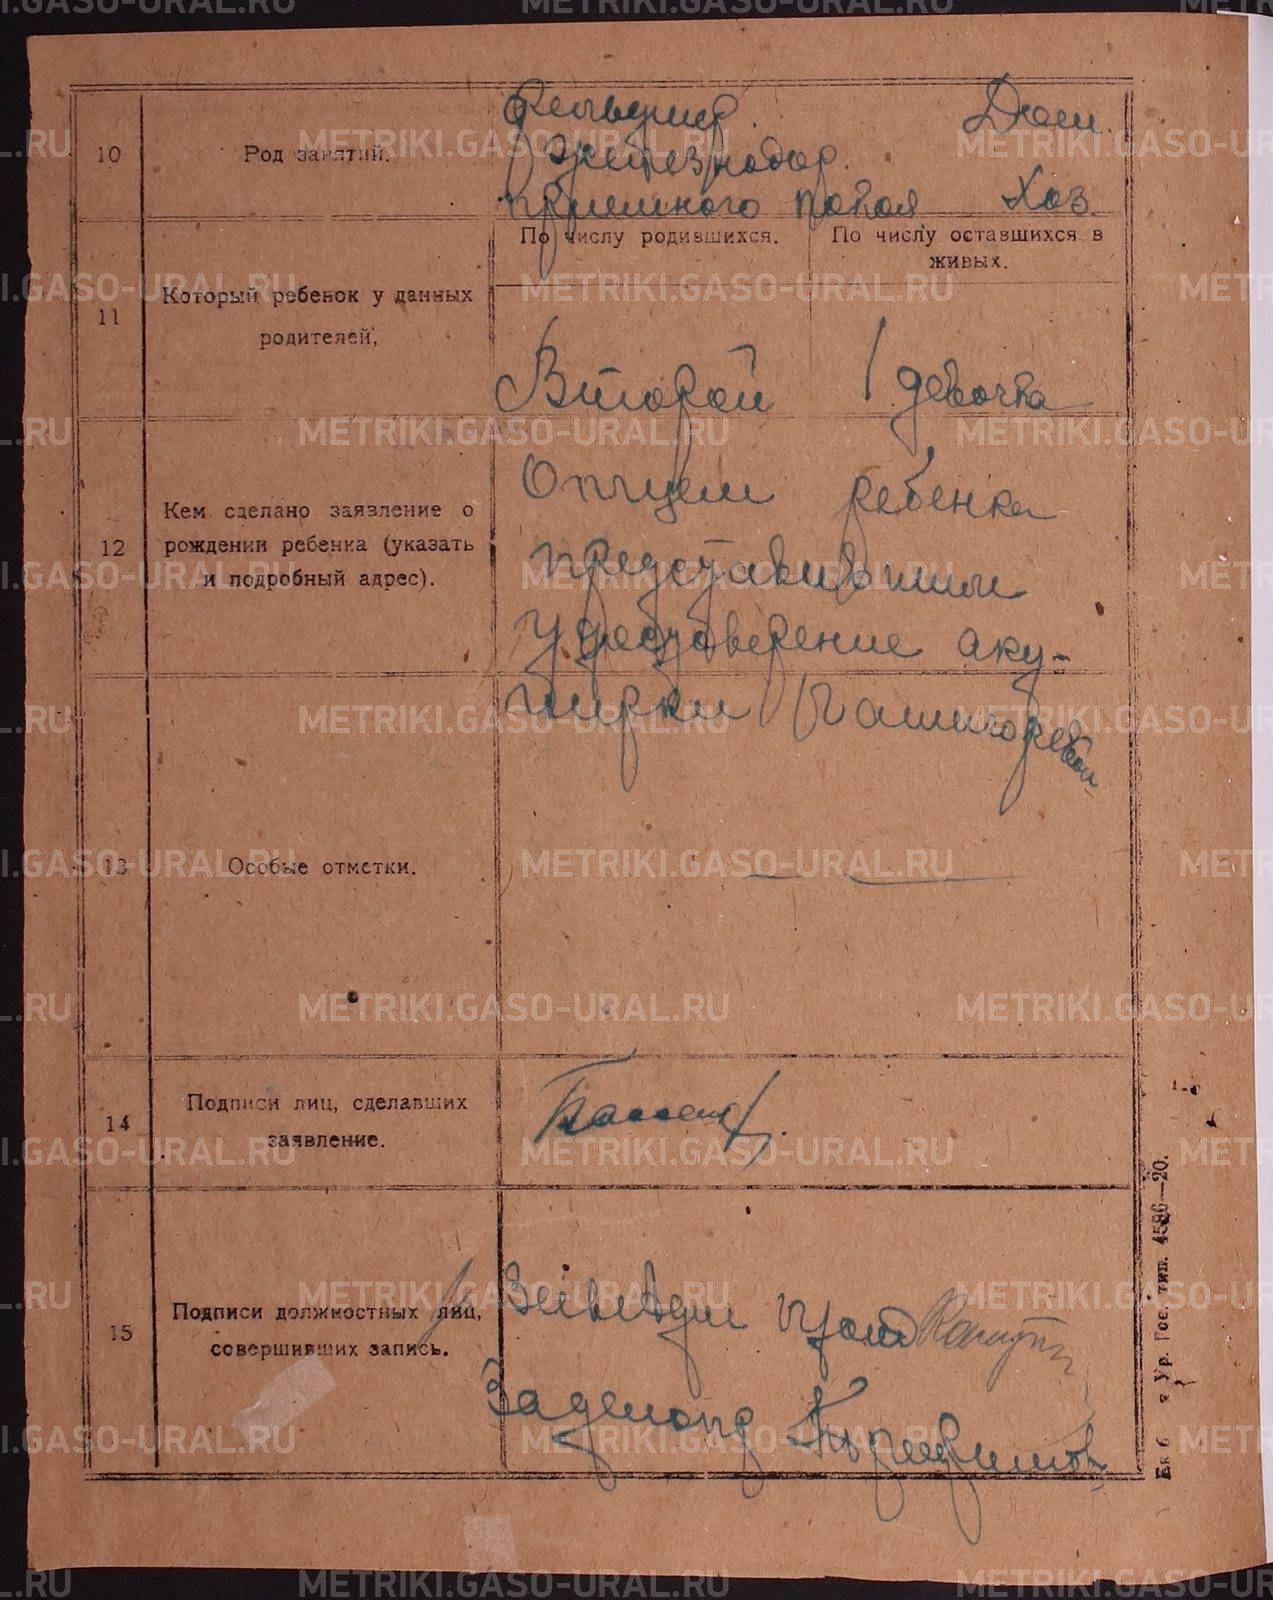 10
Род занятий.
фельдшер Дом.
железнодор.
приемного покоя Хоз.
По числу родившихся.
По числу оставшихся в
живых.
11
Который ребенок у данных
родителей,
Второй 1 девочка
12
Кем сделано заявление о
рождении ребенка (указать
и подробный адрес).
Отцем ребенка
представившим
удостоверение аку-
шерки
13
Особые отметки.
14
Подписи лиц, сделавших
заявление.
15
Подписи должностных лиц,
совершивших запись.
Завед
За делопр
Ур. Гос. тип. 4586—20.
METRIKI.GASO-URAL.RU